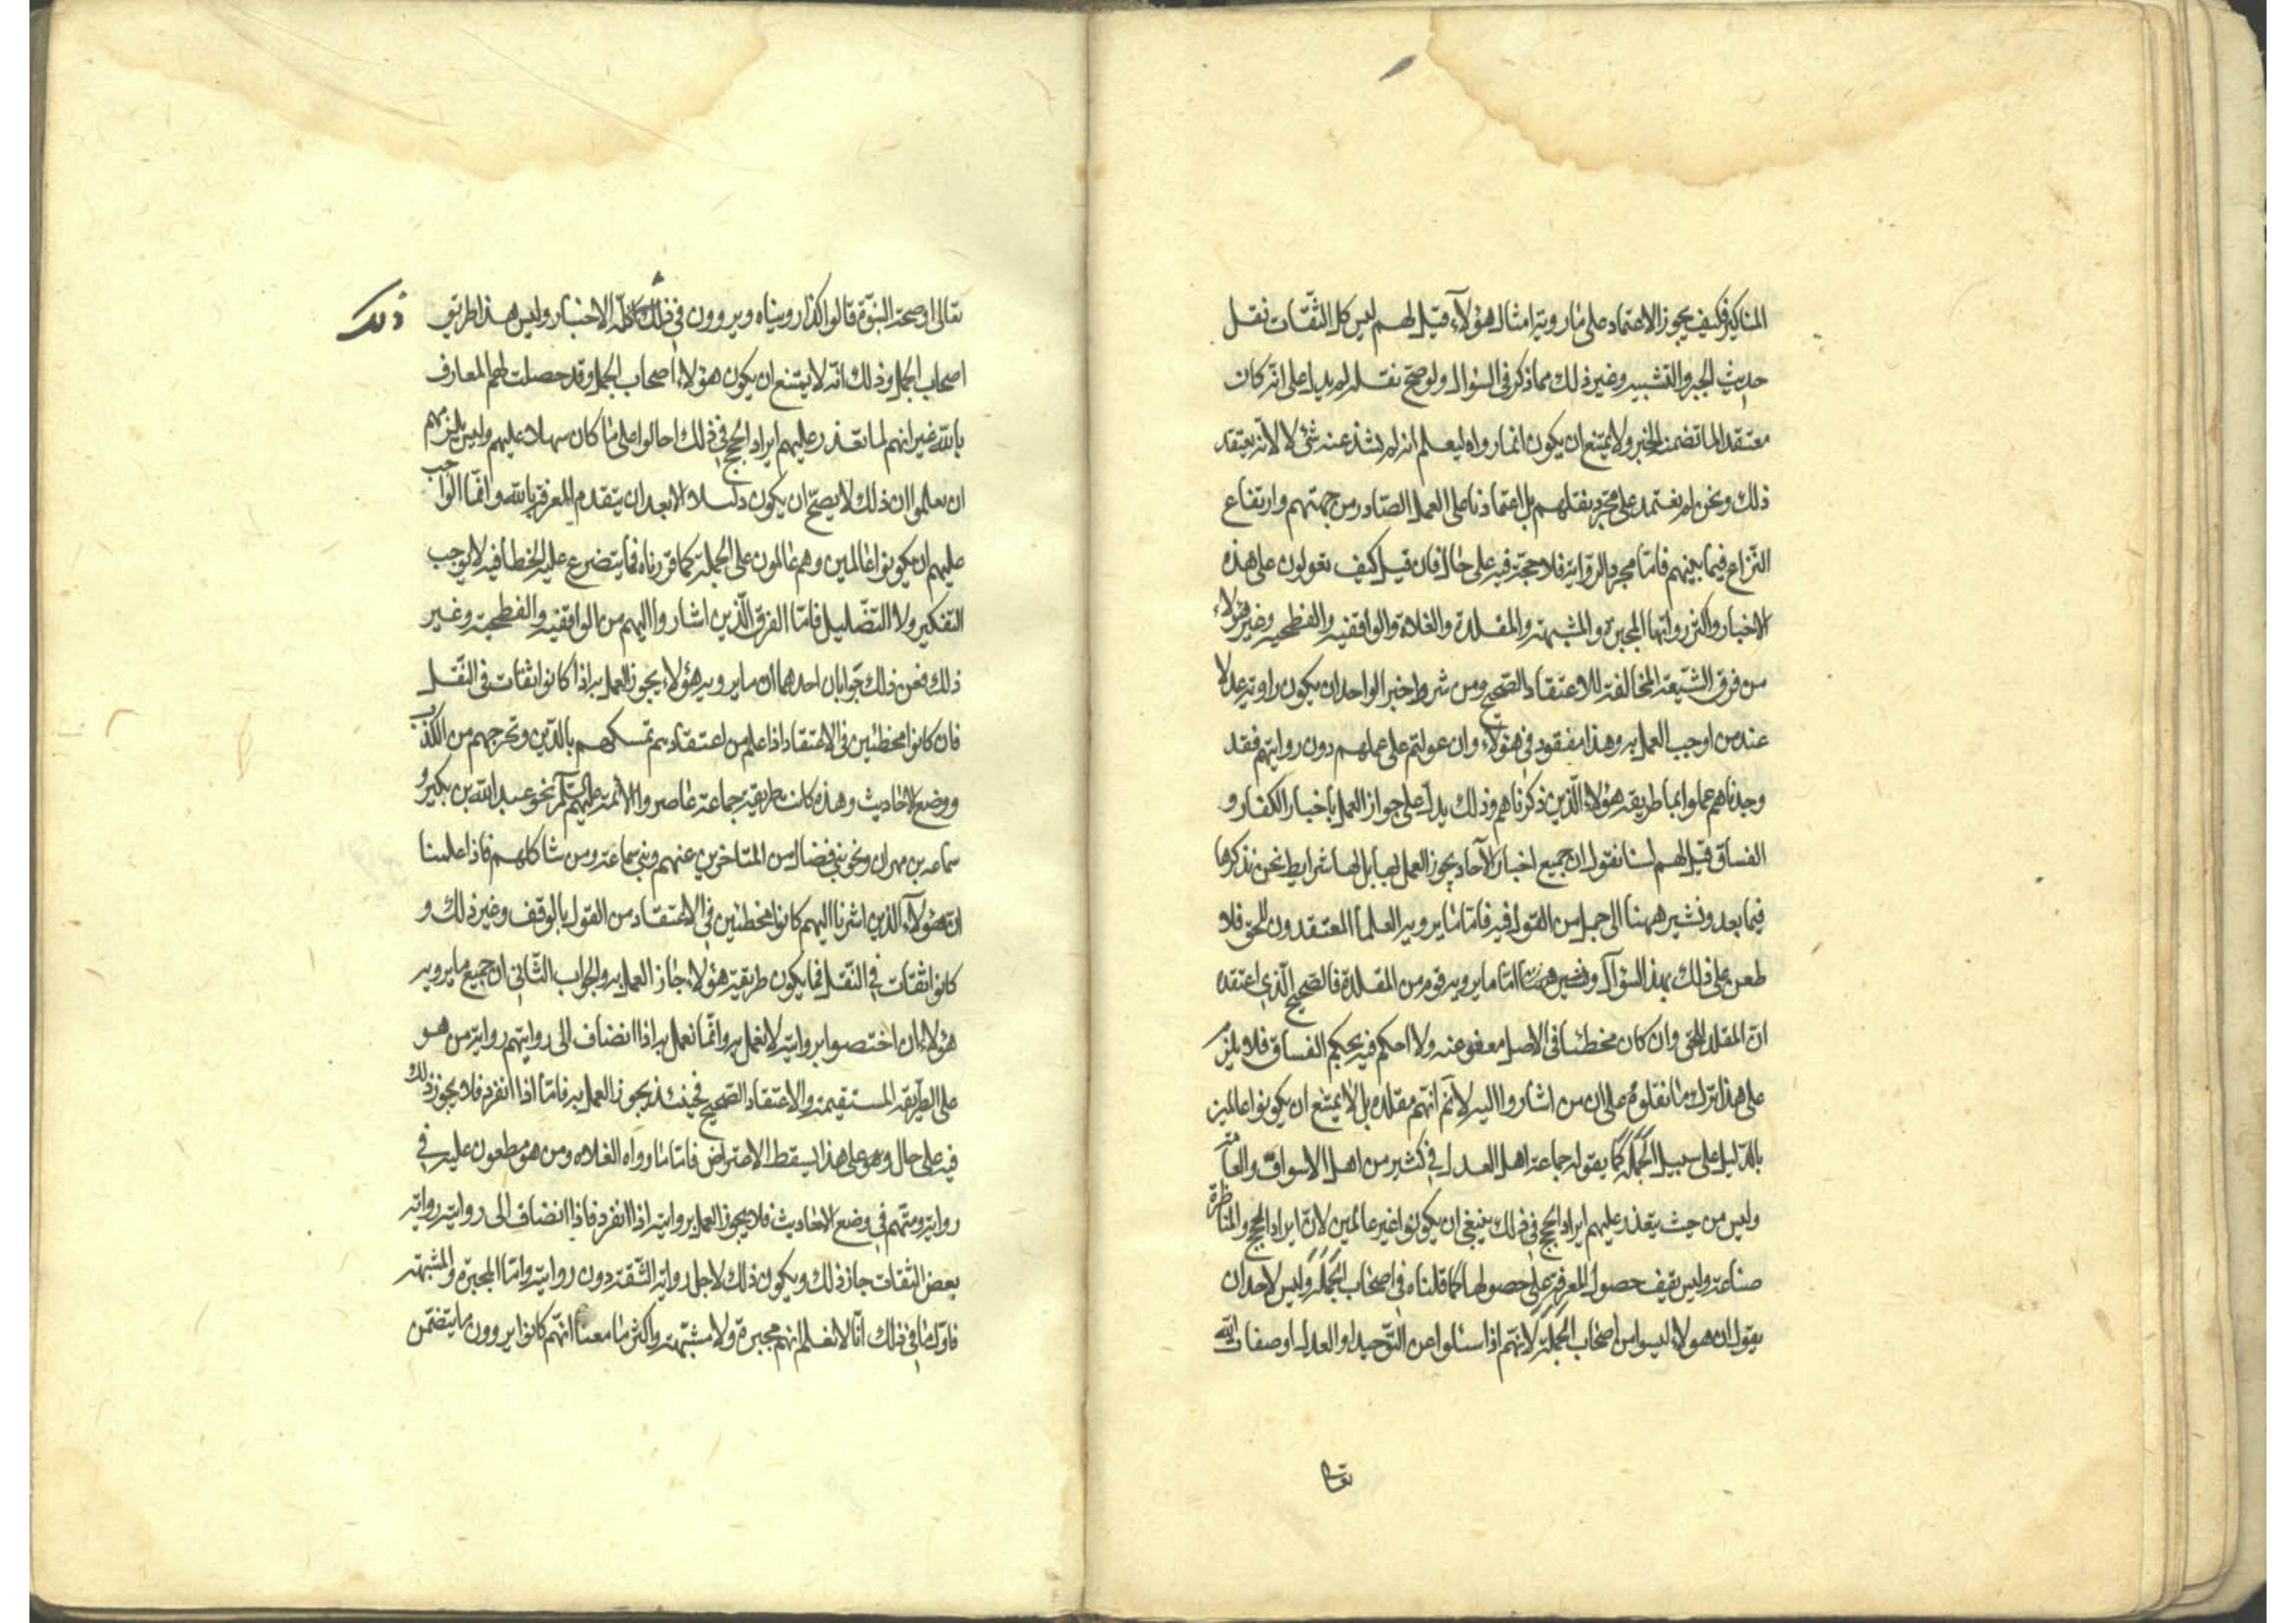 المناكير فكيف يجوز الاعتماد على ما رويه امثال هؤلاء قيل لهم ليس كل الثقات نقل
حديث الجبر والتشبيه وغير ذلك مما ذكر في السؤال ولو صح نقله لم يدل على انه كان
معتقدا لما تضمنه الخبر ولا يمتنع ان يكون انما رواه ليعلم انه لم يشذ عنه شئ لا لانه يعتقد
ذلك ونحن لم نعتمد على مجرد نقلهم بل اعتمادنا على العمل الصادر من جهتهم وارتفاع
النزاع فيما بينهم فاما مجرد الرواية فلا حجة فيه على حال فان قيل كيف تعولون على هذه
الاخبار واكثر رواتها المجبرة والمشبهة والمقلدة والغلاة والواقفية والفطحية وغير هؤلاء
من فرق الشيعة المخالفة للاعتقاد الصحيح ومن شروط خبر الواحد ان يكون راويه عدلا
عند من اوجب العمل به وهذا مفقود في هؤلاء وان عولتم على عملهم دون روايتهم فقد
وجدناهم عملوا بما طريقه هؤلاء الذين ذكرناهم وذلك يدل على جواز العمل باخبار الكفار و
الفساق قيل لهم لسنا نقول ان جميع اخبار الآحاد يجوز العمل بها بل لها شرايط نحن نذكرها
فيما بعد ونشير ههنا الى جملة من القول فيه فاما ما يرويه العلما المعتقدون للحق فلا
طعن على ذلك بهذا السؤال ونشير ههنا اما ما يرويه قوم من المقلدة فالصحيح الذي اعتقده
ان المقلد للحق وان كان مخطئا في الاصل معفو عنه ولا احكم فيه بحكم الفساق فلا يلزم
على هذا ترك ما نقلوه على ان من اشاروا اليه لا نم انهم مقلدة بل لا يمتنع ان يكونوا عالمين
بالدليل على سبيل الجملة كما يقوله جماعة اهل العدل في كثير من اهل الاسواق والعامة
وليس من حيث يتعذر عليهم ايراد الحجج في ذلك ينبغي ان يكونوا غير عالمين لان ايراد الحجج والمناظرة
صناعة وليس يقف حصول المعرفة على حصولها كما قلناه في اصحاب الجملة وليس لاحد ان
يقول ان هؤلاء ليسوا من اصحاب الجملة لانهم اذا سئلوا عن التوحيد او العدل او صفات الله
تعالى او صحة النبوة قالوا كذا روينا ه ويروون في ذلك كله الاخبار وليس هذا طريق
ذلك
اصحاب الجمل وذلك انه لا يمتنع ان يكون هؤلاء اصحاب الجمل وقد حصلت لهم المعارف
بالله غير انهم لما تعذر عليهم ايراد الحجج في ذلك احالوا على ما كان سهلا عليهم وليس يلزمهم
ان يعلموا ان ذلك لا يصح ان يكون دليلا الا بعد ان يتقدم المعرفة بالله وانما الواجب
عليهم ان يكونوا عالمين وهم عالمون على الجملة كما قررناه فما يتضرع عليه الخطا فيه لا يوجب
التفكير ولا التضليل فاما الفرق الذين اشاروا اليهم من الواقفيه والفطحية وغير
ذلك فعن ذلك جوابان احدهما ان ما يرويه هؤلاء يجوز العمل به اذا كانوا ثقات في النقل
فان كانوا مخطئين في الاعتقاد اذا علم من اعتقادهم تمسكهم بالدين وتحرجهم من الكذب
ووضع الاحاديث وهذه كانت طريقة جماعة عاصروا الائمة عليهم السلام نحو عبد الله بن بكير و
سماعه بن مهران ونحو بني فضال من المتاخرين عنهم وبني سماعة ومن شاكلهم فاذا علمنا
ان هؤلاء الذين اشرنا اليهم كانوا مخطئين في الاعتقاد من القول بالوقف وغير ذلك و
كانوا ثقات في النقل فما يكون طريقه هؤلاء جاز العمل به والجواب الثاني ان جميع ما يرويه
هؤلاء ان اختصوا بروايته لا نعمل به وانما نعمل به اذا انضاف الى روايتهم رواية من هو
على الطريقة المستقيمة والاعتقاد الصحيح فحينئذ يجوز العمل به فاما اذا انفرد فلا يجوز ذلك
فيه على حال وهو على هذا يسقط الاعتراض فاما ما رواه الغلاه ومن هو مطعون عليه في
روايته ومتهم في وضع الاحاديث فلا يجوز العمل بروايته اذا انفرد فاذا انضاف الى روايته رواية
بعض الثقات جاز ذلك ويكون ذلك لاجل رواية الثقة دون روايته واما المجبرة والمشبهة
فاول ما في ذلك انا لا نعلم انهم مجبرة ولا مشبهة واكثر ما معنا انهم كانوا يروون ما يتضمن